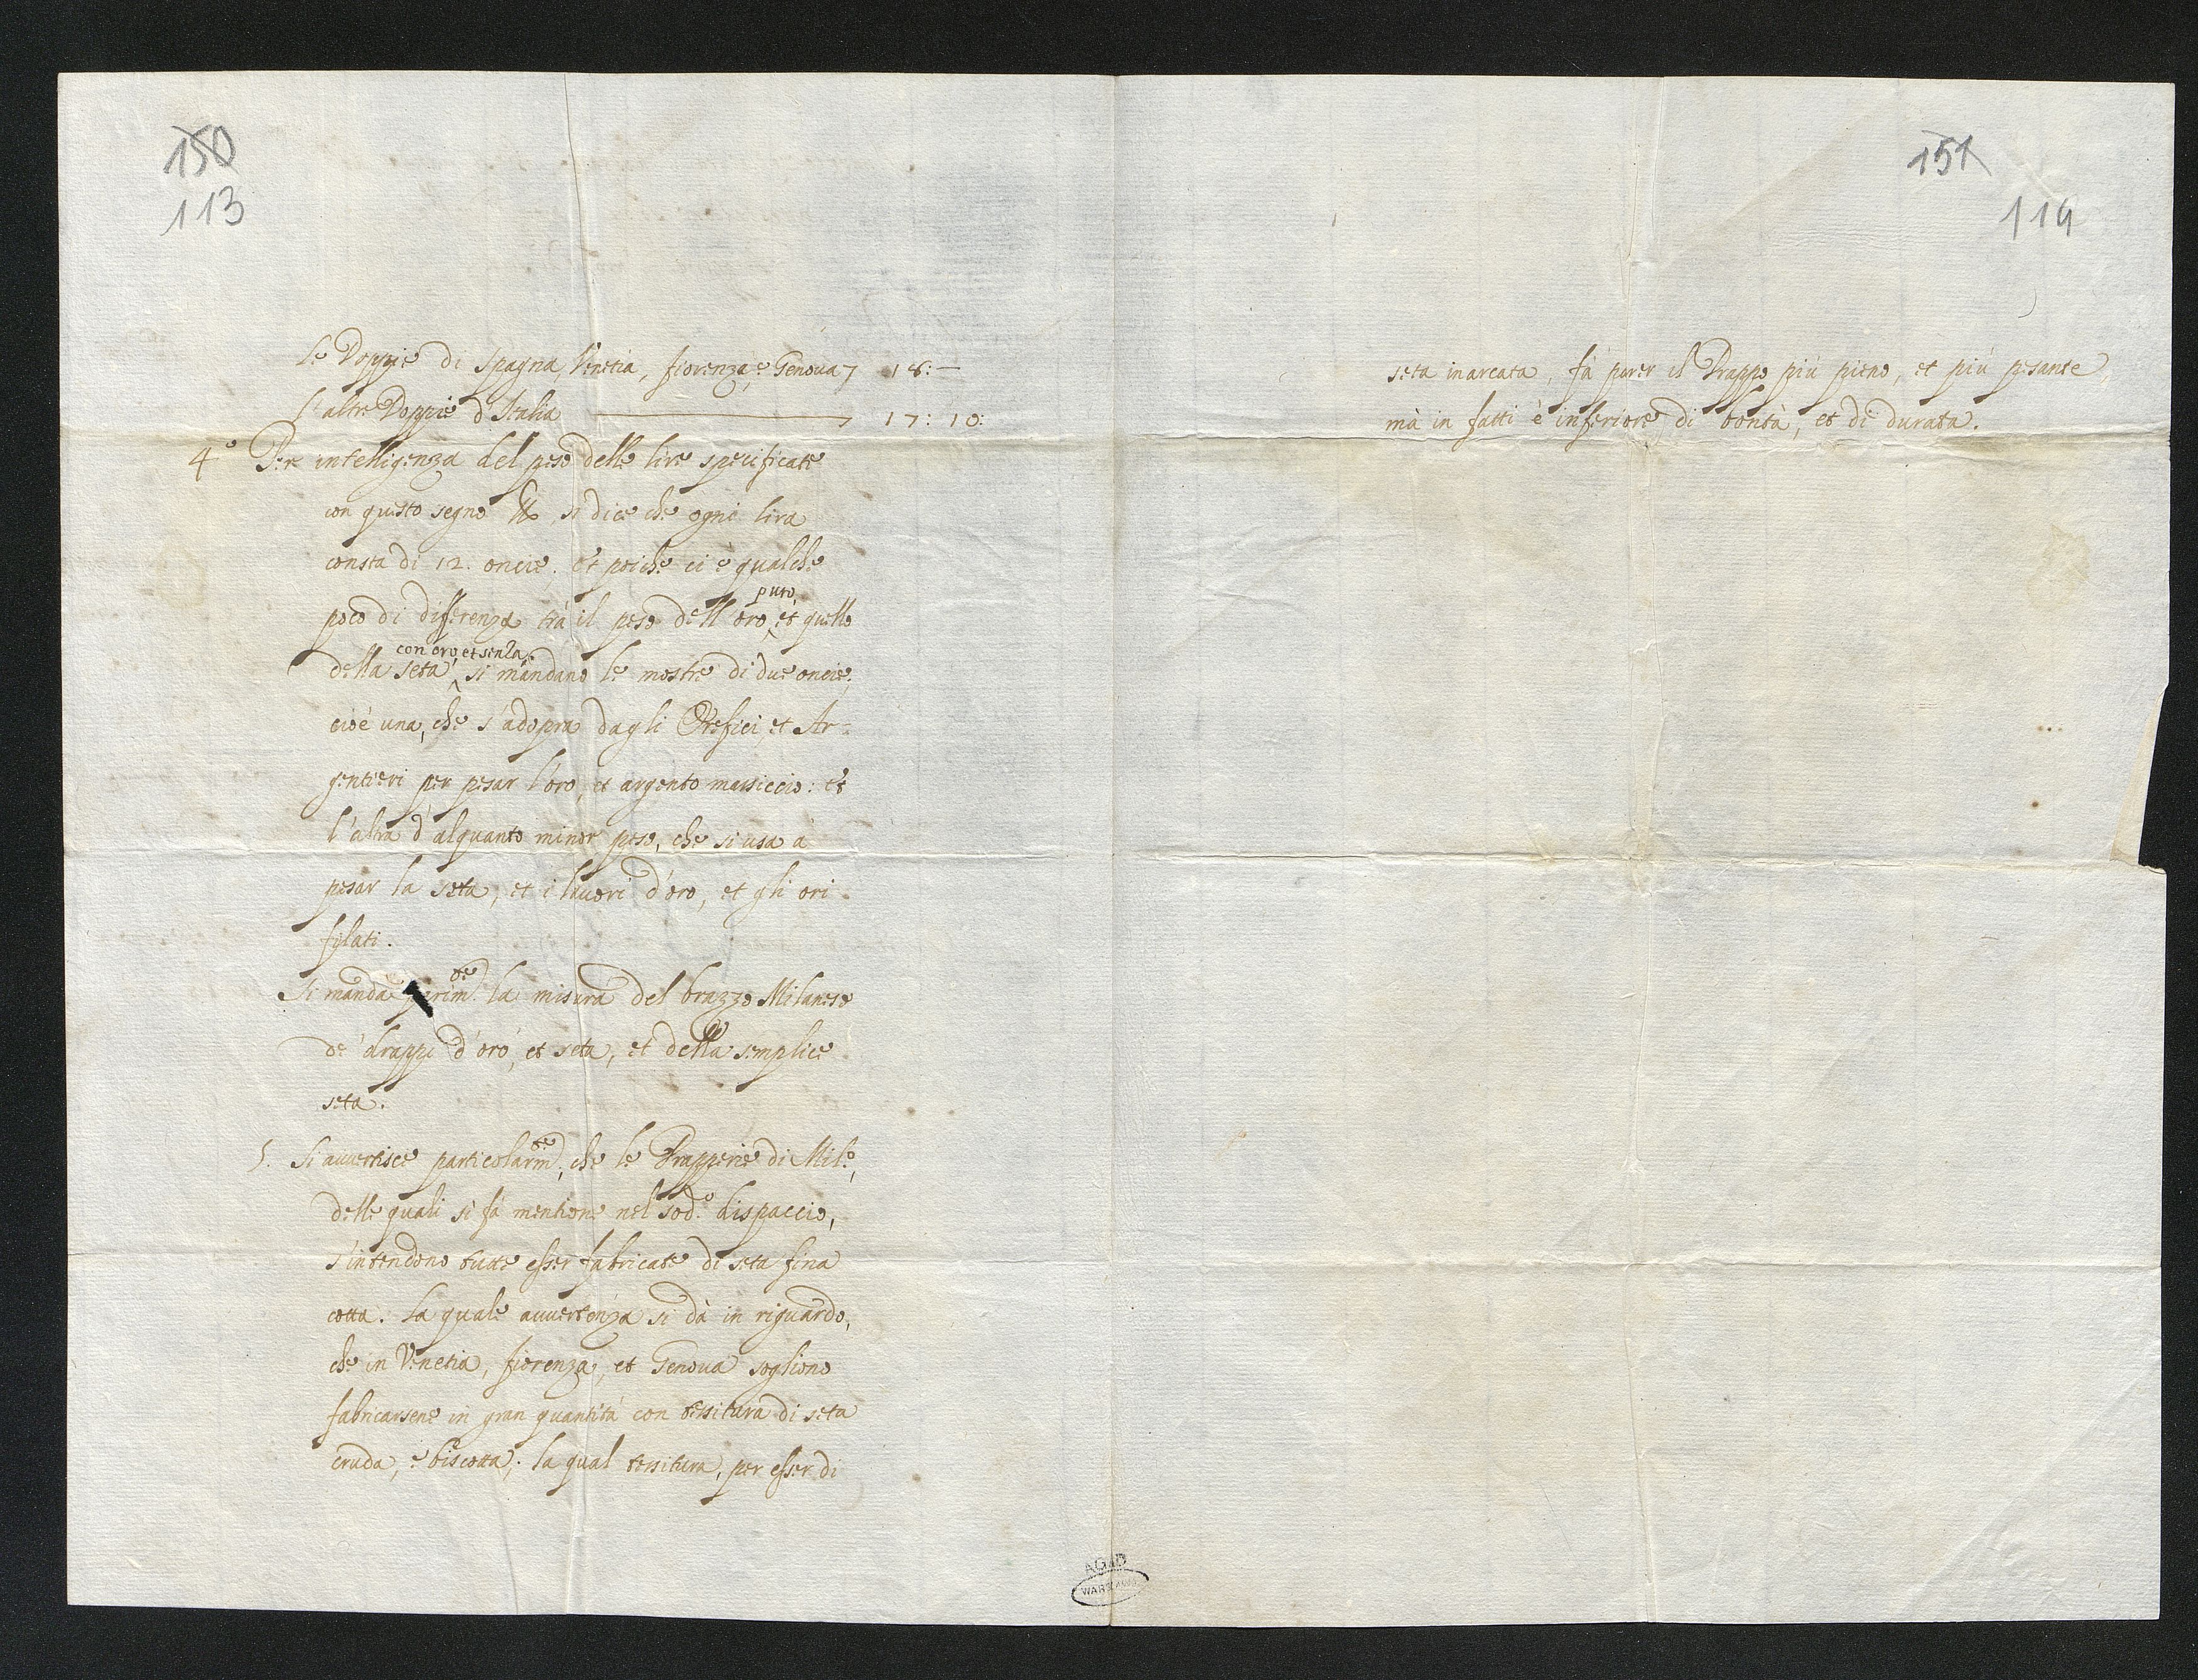 150
113
Le Doppie di Spagna, Venetia, fiorenza, e Genoua 18:—
L'altre Doppie d'Italia 17:10:
4° Per intelligenza del peso delle lire specificate
con questo segno ℔ si dice che ogni lira
consta di 12. oncie. Et poiche ci è qualche
poco di differenza trà il peso dell'oro puro, et quello
della seta con oro, et senza, si mandano le mostre di due oncie;
cioè una, che s'adopra dagli Orefici, et Ar-
gentieri per pesar l'oro, et argento massiccio: et
l'altra d'alquanto minor peso, che si usa à
pesar la seta, et i lauori d'oro, et gli ori
filati.
Si manda parim.te la misura del brazzo Milanese
de' drappi d'oro, et seta, et della semplice
seta.
5. Si auuertisce particolarm.te, che le Drapperie di Mil.o,
delle quali si fà mentione nel sod.o dispaccio,
s'intendono tutte esser fabricate di seta fina
cotta. La quale auuertenza si dà in riguardo,
che in Venetia, fiorenza, et Genoua sogliono
fabricarsene in gran quantità con tessitura di seta
cruda, e biscotta; la qual tessitura, per esser di
151
114
seta inarcata, fà parer il Drappo più pieno, et più pesante,
mà in fatti è inferiore di bontà, et di durata.
AGAD
WARSZAWA